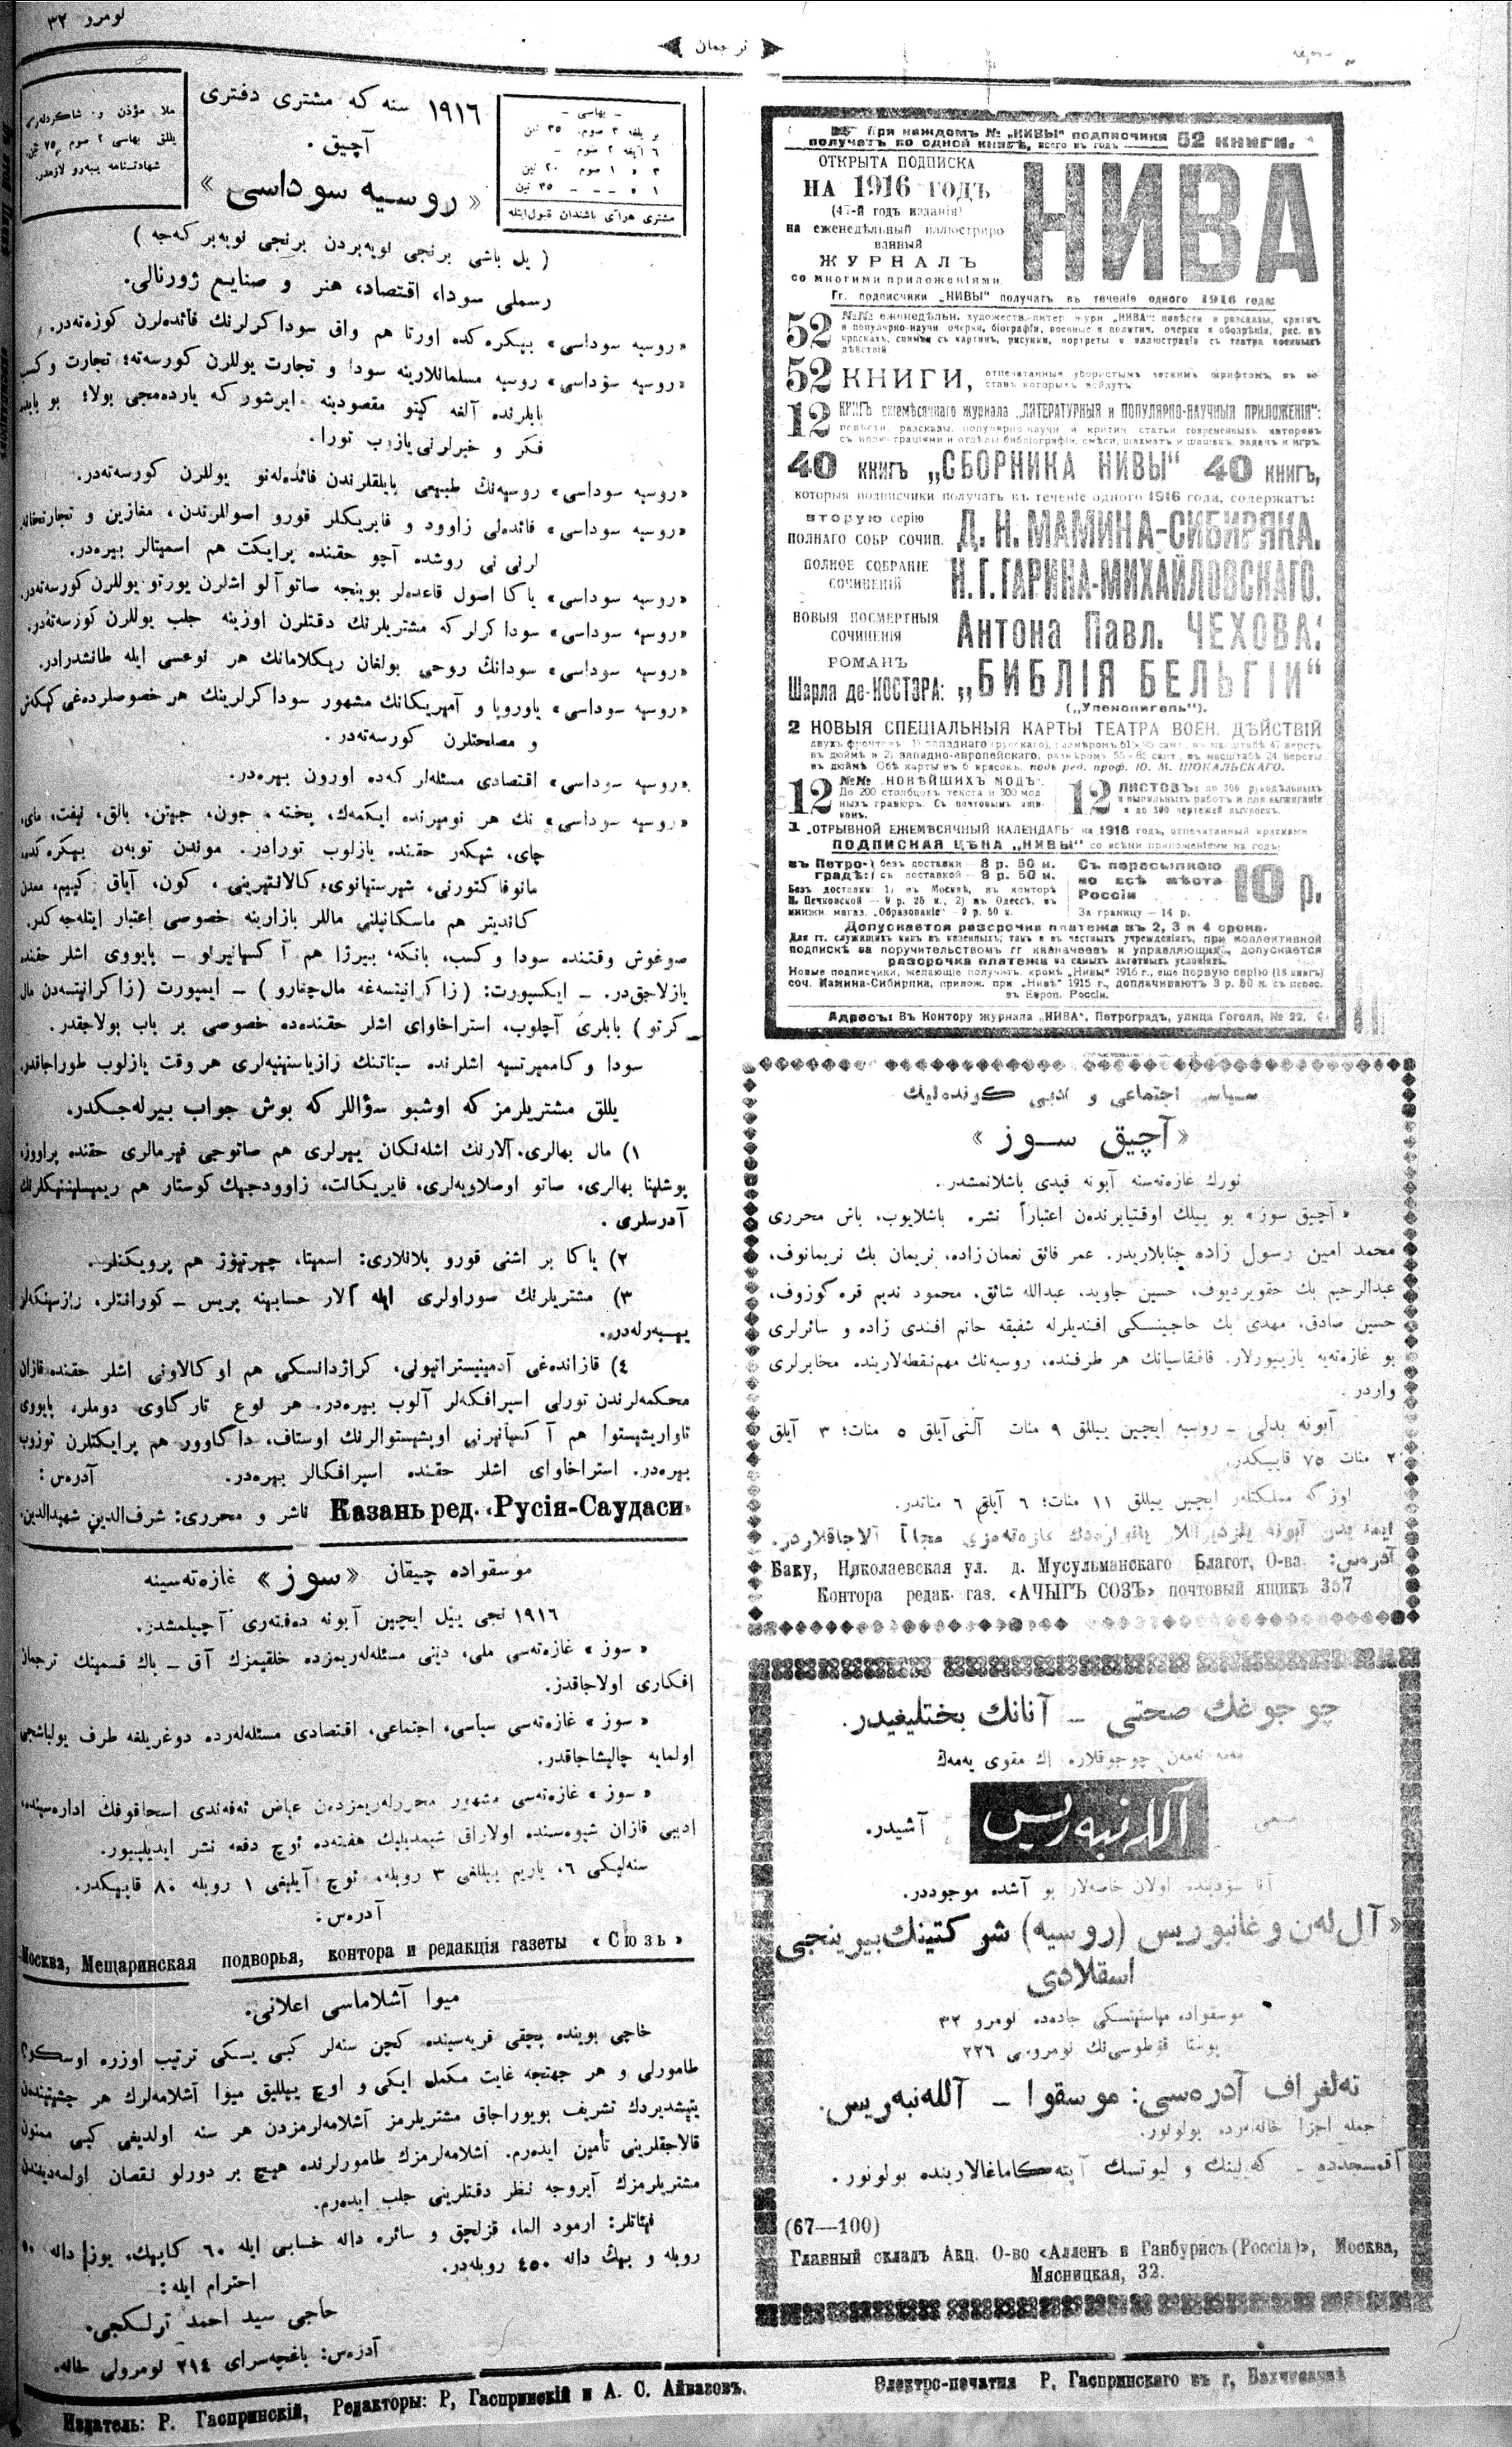 نومرو ٣٢
ترجمان
ملا مؤذن و شاكردلەرگە
يللق بهاسى ٢ صوم ٧٥ تين
شهادتنامه ييبەرو لازمدر.
١٩١٦ سنە گە مشترى دفترى
آچيق .
«روسيه سوداسى»
— بهاسى —
بر يلغه ٣ صوم. ٣٥ تين
٦ آيغه ٢ صوم —
٣ » ١ صوم ٢٠ تين
١ » — — ٣٥ تين
مشترى هرآى باشندان قبول ايتله
( يل باشى برنجى نويەبردن برنجى نويەبر گەجە )
رسملى سودا، اقتصاد، هنر و صنايع ژورنالى.
«روسيه سوداسى» بيكرەك ده اورتا هم واق سوداگرلرنڭ فائدەلرن كوزەتەدر.
«روسيه سوداسى» روسيه مسلمانلارينه سودا و تجارت يوللرن كورسەتە؛ تجارت و كسب
بابلرنده آلغه كيتو مقصودينه ايرشور گە ياردەمجى بولا؛ بو بابده
فكر و خبرلرنى يازوب تورا.
«روسيه سوداسى» روسيه‌نڭ طبيعى بايلقلرندن فائدەلەنو يوللرن كورسەتەدر.
«روسيه سوداسى» فائدەلى زاوود و فابريكلر قورو اصوللرندن، مغازين و تجارتخانه
لرنى نى روشده آچو حقنده پرايكت هم اسميتالر بيرەدر.
«روسيه سوداسى» ياڭا اصول قاعدەلر بوينچه صاتو آلو اشلرن يورتو يوللرن كورسەتەدر.
«روسيه سوداسى» سوداگرلر گە مشتريلرنڭ دقتلرن اوزينه جلب يوللرن كورسەتەدر.
«روسيه سوداسى» سودانڭ روحى بولغان ريكلامانڭ هر نوعسى ايله طانشدرادر.
«روسيه سوداسى» ياوروپا و آمريكانڭ مشهور سوداگرلرينڭ هر خصوصلردەغى كيڭەش
و مصلحتلرن كورسەتەدر .
«روسيه سوداسى» اقتصادى مسئلەلر گەده اورون بيرەدر.
«روسيه سوداسى» نڭ هر نوميرنده ايكمەك، پخته، جون، جيتن، بالق، ليفت، ماى،
چاى، شيكەر حقنده يازلوب تورادر. موندن توبەن بيكرەك ده
كانديتر هم ماسكاتيلنى ماللر بازارينه خصوصى اعتبار ايتلەجەكدر.
يازلاجق‌در. — ايكسپورت: (زاگرانيتسەغه مال چغارو) — ايمپورت (زاگرانيتسەدن مال
كرتو) بابلرى آچلوب، استراخاواى اشلر حقنده‌ده خصوصى بر باب بولاجقدر.
يللق مشتريلرمز گە اوشبو سؤاللر گە بوش جواب بيرلەجكدر.
١) مال بهالرى. آلارنڭ اشلەنكان ييرلرى هم صاتوچى فيرمالرى حقنده پراووز،
پوشلينا بهالرى، صاتو اوصلاويەلرى، فابريكانت، زاوودجيك كوستار هم ريميسلينيكلرنڭ
آدرسلرى .
٢) ياڭا بر اشنى قورو پلانلارى: اسميتا، چيرتيوژ هم پرويكتلر.
٣) مشتريلرنڭ صوراولرى ايله آلار حسابينه پريس — كورانتلر،
ييبەرلەدر.
٤) قازاندەغى آدمينيستراتيونى، گراژدانسكى هم اوگالاونى اشلر حقنده قازان
محكمەلرندن تورلى اسپرافكەلر آلوب بيرەدر.
بيرەدر. استراخاواى اشلر حقنده اسپرافكالر بيرەدر. آدرس:
Казань ред. «Русія-Саудаси» ناشر و محررى: شرف‌الدين شهيدالدين.
موسقواده چيقان «سوز» غازەتەسينه
١٩١٦ نجى ييل ايچين آبونه دەفتەرى آچيلمشدر.
«سوز» غازەتەسى ملى، دينى مسئلەلەريمزده خلقيمزڭ آق — پاك قسمينڭ ترجمان
افكارى اولاجاقدر.
«سوز» غازەتەسى سياسى، اجتماعى، اقتصادى مسئلەلەرده دوغريلغه طرف يولباشچى
اولمايه چاليشاجاقدر.
«سوز» غازەتەسى مشهور محررلەريمزدەن عياض ئەفەندى اسحاقوفڭ ادارەسينده،
ادبى قازان شيوەسنده اولاراق شيمديليك هفتەده ئوچ دفعه نشر ايديلييور.
سنەليكى ٦، ياريم ييللغى ٣ روبله، ئوچ آيليغى ١ روبله ٨٠ قاپيكدر.
آدرەس:
Москва, Мещаринская подворья, контора и редакція газеты «Сюзь»
ميوا آشلاماسى اعلانى.
خاجى بوينده پچقى قريەسينده كچن سنەلر كبى يسكى ترتيب اوزره
طامورلى و هر جهتجه غايت مكمل ايكى و اوچ ييلليق ميوا آشلامەلرڭ هر چشيتيندەن
يتيشديردك تشريف بويوراجاق مشتريلرمز آشلامەلرمزدن هر سنه اولديغى كبى ممنون
قالاجقلرينى تأمين ايدەرم. آشلامەلرمزڭ طامورلرنده هيچ بر دورلو نقصان اولمەديغندن
مشتريلرمزڭ آيروجه نظر دقتلرينى جلب ايدەرم.
فيئاتلر: ارمود الما، قزلجق و سائره دانه حسابى ايله ٦٠ كاپيك، يوز دانه ٥٠
روبله و بيڭ دانه ٤٥٠ روبلەدر.
احترام ايله:
حاجى سيد احمد ترلكجى.
آدرەس: باغچەسراى ٢١٤ نومرولى خانه.
При каждомъ № „НИВЫ“ подписчики
получатъ по одной книгѣ, всего въ годъ — 52 книги.
ОТКРЫТА ПОДПИСКА
НА 1916 ГОДЪ
(47-й годъ изданія)
на еженедѣльный иллюстриро
ванный
ЖУРНАЛЪ
со многими приложеніями.
НИВА
Гг. подписчики „НИВЫ“ получатъ въ теченіе одного 1916 года:
52 №№ еженедѣльн. художеств.-литер. журн. „НИВА“: повѣсти и разсказы, критич.
и популярно-научн. очерки, біографіи, военные и политич. очерки и обозрѣнія, рис. въ
краскахъ, снимки съ картинъ, рисунки, портреты и иллюстраціи съ театра военныхъ
дѣйствій.
52 КНИГИ, отпечатанныя убористымъ четкимъ шрифтомъ, въ со
ставъ которыхъ войдутъ:
12 КНИГЪ ежемѣсячнаго журнала „ЛИТЕРАТУРНЫЯ и ПОПУЛЯРНО-НАУЧНЫЯ ПРИЛОЖЕНІЯ“:
повѣсти, разсказы, популярно-научн. и критич. статьи современныхъ авторовъ
съ иллюстраціями и отдѣлы библіографіи, смѣси, шахматъ и шашекъ, задачъ и игръ.
40 книгъ „СБОРНИКА НИВЫ“ 40 книгъ,
которыя подписчики получатъ въ теченіе одного 1916 года, содержатъ:
ВТОРУЮ серію
ПОЛНАГО СОБР. СОЧИН. Д. Н. МАМИНА-СИБИРЯКА.
ПОЛНОЕ СОБРАНІЕ
СОЧИНЕНІЙ Н. Г. ГАРИНА-МИХАЙЛОВСКАГО.
НОВЫЯ ПОСМЕРТНЫЯ
СОЧИНЕНІЯ Антона Павл. ЧЕХОВА:
РОМАНЪ
Шарля де-КОСТЭРА: „БИБЛІЯ БЕЛЬГІИ“
(„Уленспигель“).
2 НОВЫЯ СПЕЦІАЛЬНЫЯ КАРТЫ ТЕАТРА ВОЕН. ДѢЙСТВІЙ
двухъ фронтовъ: 1) западнаго (русскаго), размѣромъ 61×95 сант., въ масштабѣ 47 верстъ
въ дюймѣ и 2) западно-европейскаго, размѣромъ 65×85 сант., въ масштабѣ 24 версты
въ дюймѣ. Обѣ карты въ 6 красокъ, подъ ред. проф. Ю. М. ШОКАЛЬСКАГО.
12 №№ „НОВѢЙШИХЪ МОДЪ“.
До 200 столбцовъ текста и 300 мод
ныхъ гравюръ. Съ почтовымъ ящи
комъ.
12 ЛИСТОВЪ: до 300 рукодѣльныхъ
и выпильныхъ работъ и для выжиганія
и до 300 чертежей выкроекъ.
1 „ОТРЫВНОЙ ЕЖЕМѢСЯЧНЫЙ КАЛЕНДАРЬ“ на 1916 годъ, отпечатанный красками
ПОДПИСНАЯ ЦѢНА „НИВЫ“ со всѣми приложеніями на годъ:
въ Петро-градѣ: безъ доставки — 8 р. 50 к.
съ доставкой — 9 р. 50 к.
Безъ доставки: 1) въ Москвѣ, въ конторѣ
Н. Печковской — 9 р. 25 к., 2) въ Одессѣ, въ
книжн. магаз. „Образованіе“ — 9 р. 50 к.
Съ пересылкою
во всѣ мѣста
Россіи 10 р.
За границу — 14 р.
Допускается разсрочка платежа въ 2, 3 и 4 срока.
Для гг. служащихъ какъ въ казенныхъ, такъ и въ частныхъ учрежденіяхъ, при коллективной
подпискѣ за поручительствомъ гг. казначеевъ и управляющихъ, допускается
разсрочка платежа на самыхъ льготныхъ условіяхъ.
Новые подписчики, желающіе получить, кромѣ „Нивы“ 1916 г., еще первую серію (18 книгъ)
соч. Мамина-Сибиряка, прилож. при „Нивѣ“ 1915 г., доплачиваютъ 3 р. 50 к. съ перес.
въ Европ. Россіи.
Адресъ: Въ Контору журнала „НИВА“, Петроградъ, улица Гоголя, № 22.
سياسى اجتماعى و ادبى گوندەليك
«آچيق سوز»
تورك غازەتەسنه آبونه قيدى باشلانمشدر.
«آچيق سوز» بو ييلڭ اوقتيابرندەن اعتباراً نشره باشلايوب، باش محررى
محمد امين رسول زاده جنابلاريدر. عمر فائق نعمان زاده، نريمان بك نريمانوف،
عبدالرحيم بك حقويرديوف، حسين جاويد. عبدالله شائق، محمود نديم قره گوزوف،
حسين صادق، مهدى بك حاجينسكى افنديلرله شفيقه خانم افندى زاده و سائرلرى
بو غازەتەيه يازييورلار. قافقاسيانڭ هر طرفنده، روسيەنڭ مهم نقطەلارينده مخابرلرى
واردر.
آبونه بدلى — روسيه ايچين ييللق ٩ منات آلتى آيلق ٥ منات؛ ٣ آيلق
٢ منات ٧٥ قاپيكدر.
اوزگه مملكتلر ايچين ييللق ١١ منات؛ ٦ آيلق ٦ مناتدر.
آدرەس: Баку, Николаевская ул. д. Мусульманскаго Благот, О-ва.
Контора редак. газ. «АЧЫГЪ СОЗЪ» почтовый ящикъ 357
چوجوغڭ صحتى — آنانڭ بختليغيدر.
مەمە ئەمەن چوجوقلاره اڭ مقوى يەمەك
آللەنبەريس
آشيدر.
آنا سؤدينده اولان خاصەلار بو آشده موجوددر.
«آل لەن و غانبوريس (روسيه) شركتينڭ بيرينجى
اسقلادى
موسقواده مياسنيتسكى جادەده نومرو ٣٢
پوستا قوطوسى نڭ نومروسى ٢٢٦
تەلغراف آدرەسى: موسقوا — آللەنبەريس.
جمله اجزا خانەلرده بولونور.
(67—100)
Главный складъ Акц. О-во «Алленъ и Ганбурисъ (Россія)», Москва,
Мясницкая, 32.
Издатель: Р. Гаспринскій, Редакторы: Р, Гаспринскій и А. С. Айвазовъ.
Электро-печатня Р, Гаспринскаго въ г, Бахчисараѣ